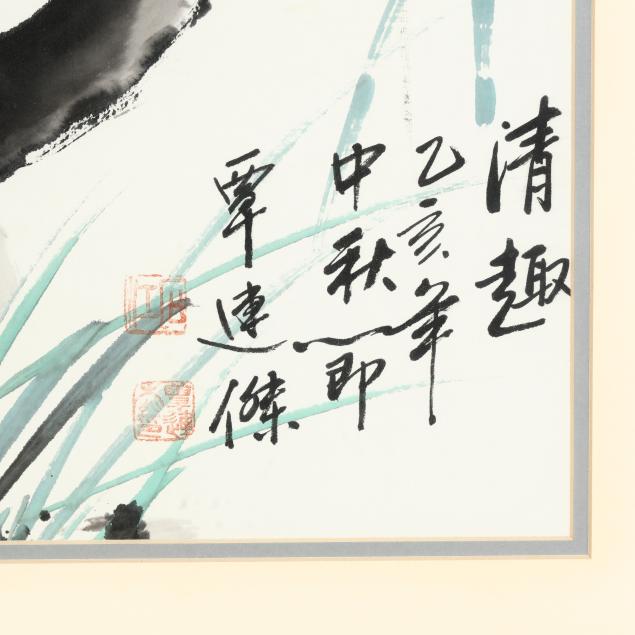 清趣
乙亥年
中秋節
覃連傑